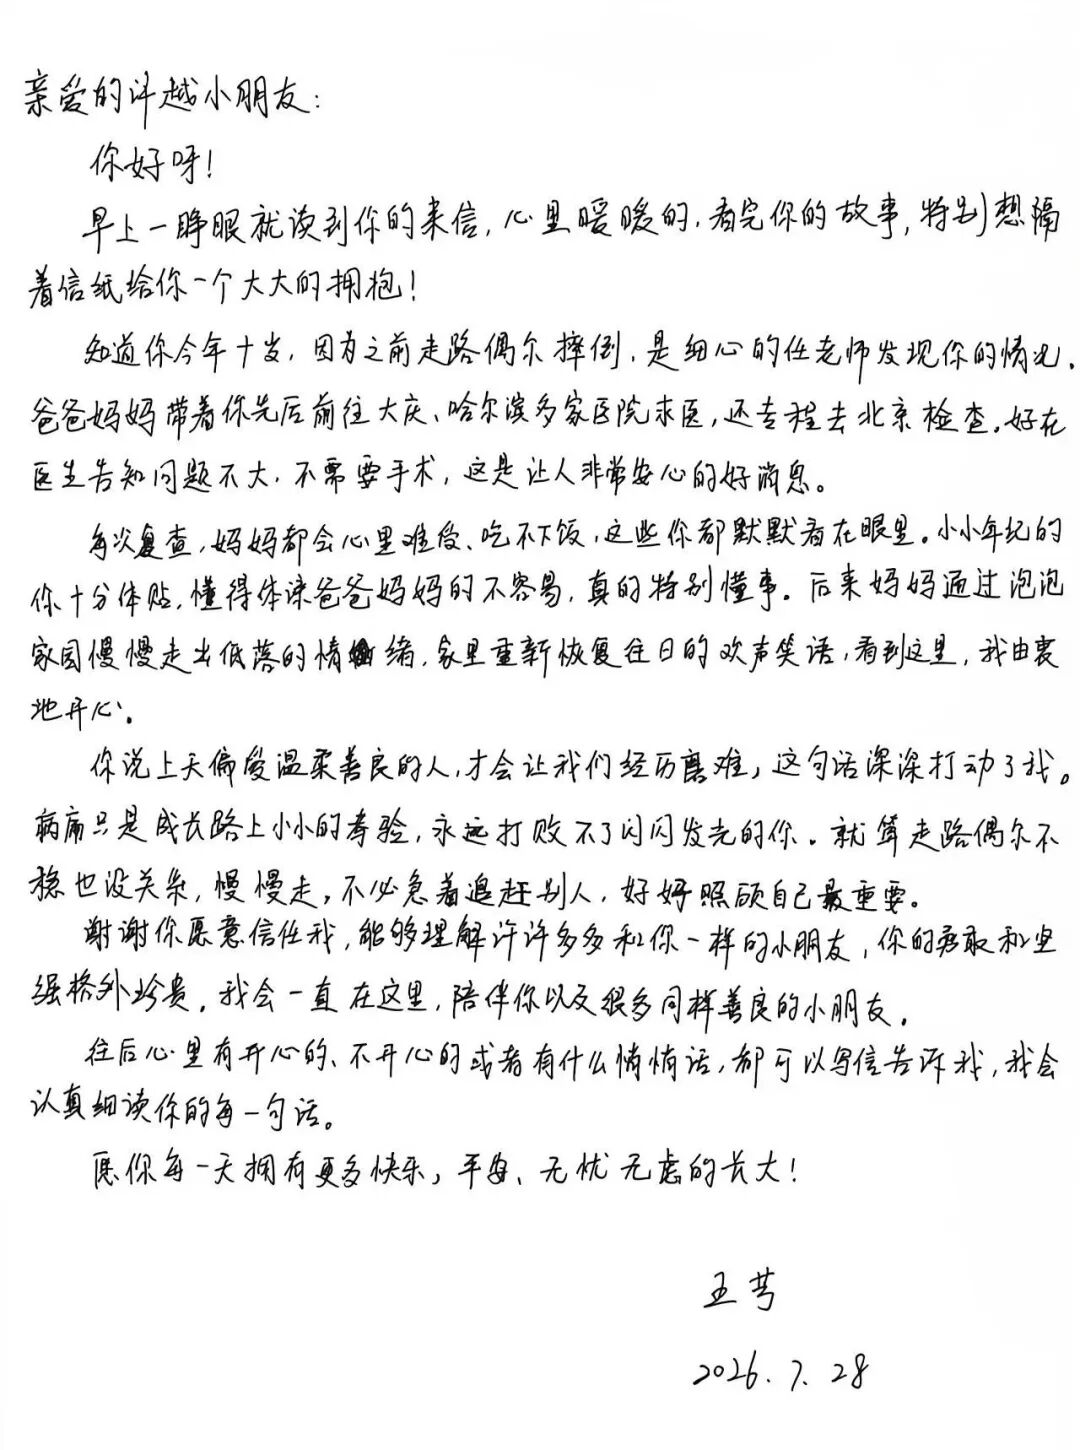 亲爱的许越小朋友：
你好呀！
早上一睁眼就读到你的来信，心里暖暖的，看完你的故事，特别想隔
着信纸给你一个大大的拥抱！
知道你今年十岁，因为之前走路偶尔摔倒，是细心的任老师发现你的情况，
爸爸妈妈带着你先后前往大庆、哈尔滨多家医院求医，还专程去北京检查。好在
医生告知问题不大，不需要手术，这是让人非常安心的好消息。
每次复查，妈妈都会心里难受、吃不下饭，这些你都默默看在眼里。小小年纪的
你十分体贴，懂得体谅爸爸妈妈的不容易，真的特别懂事。后来妈妈通过泡泡
家园慢慢走出低落的情绪，家里重新恢复往日的欢声笑语，看到这里，我由衷
地开心。
你说上天偏爱温柔善良的人，才会让我们经历磨难，这句话深深打动了我。
病痛只是成长路上小小的考验，永远打败不了闪闪发光的你。就算走路偶尔不
稳也没关系，慢慢走，不必急着追赶别人，好好照顾自己最重要。
谢谢你愿意信任我，能够理解许许多多和你一样的小朋友，你的勇敢和坚
强格外珍贵。我会一直在这里，陪伴你以及很多同样善良的小朋友。
往后心里有开心的、不开心的或者有什么悄悄话，都可以写信告诉我，我会
认真细读你的每一句话。
愿你每一天拥有更多快乐，平安、无忧无虑的长大！
王芎
2026.7.28